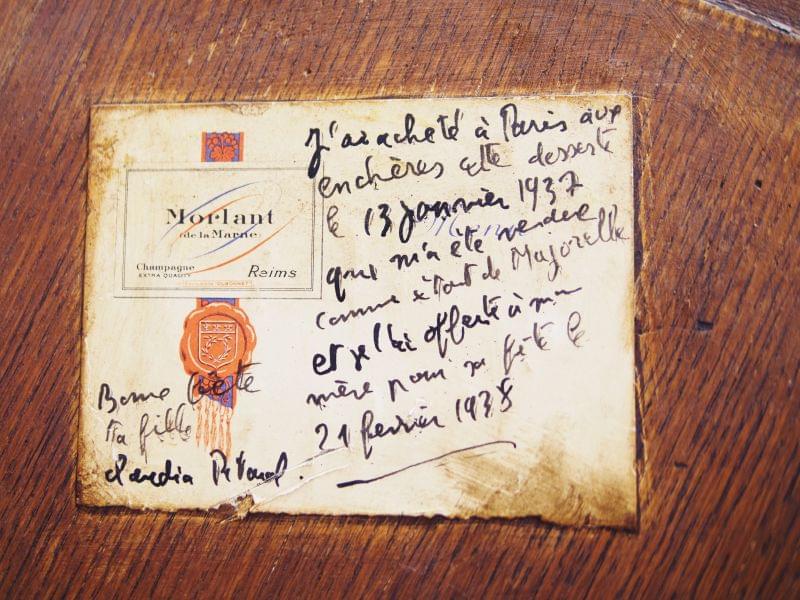 Morlant
(de la Marne)
Champagne
EXTRA QUALITY
Reims
J'ai acheté à Paris aux
enchères cette desserte
le 13 janvier 1937
qui m'a été vendue
comme étant de Majorelle
et je l'ai offerte à ma
mère pour sa fête le
21 février 1938
Bonne fête
ta fille
Claudia